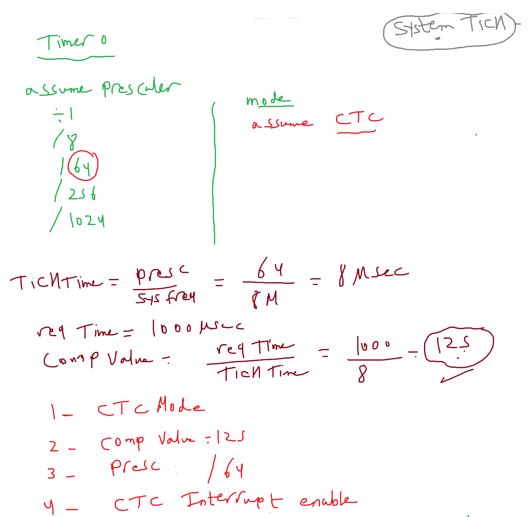 System Tick
Timer 0
assume prescaler
÷1
/8
/64
/256
/1024
mode
assume CTC
Tick Time = presc / sys freq = 64 / 8M = 8 Msec
req Time = 1000 μsec
Comp Value = req Time / Tick Time = 1000 / 8 = 125
1- CTC Mode
2- Comp Value = 125
3- Presc : /64
4- CTC Interrupt enable